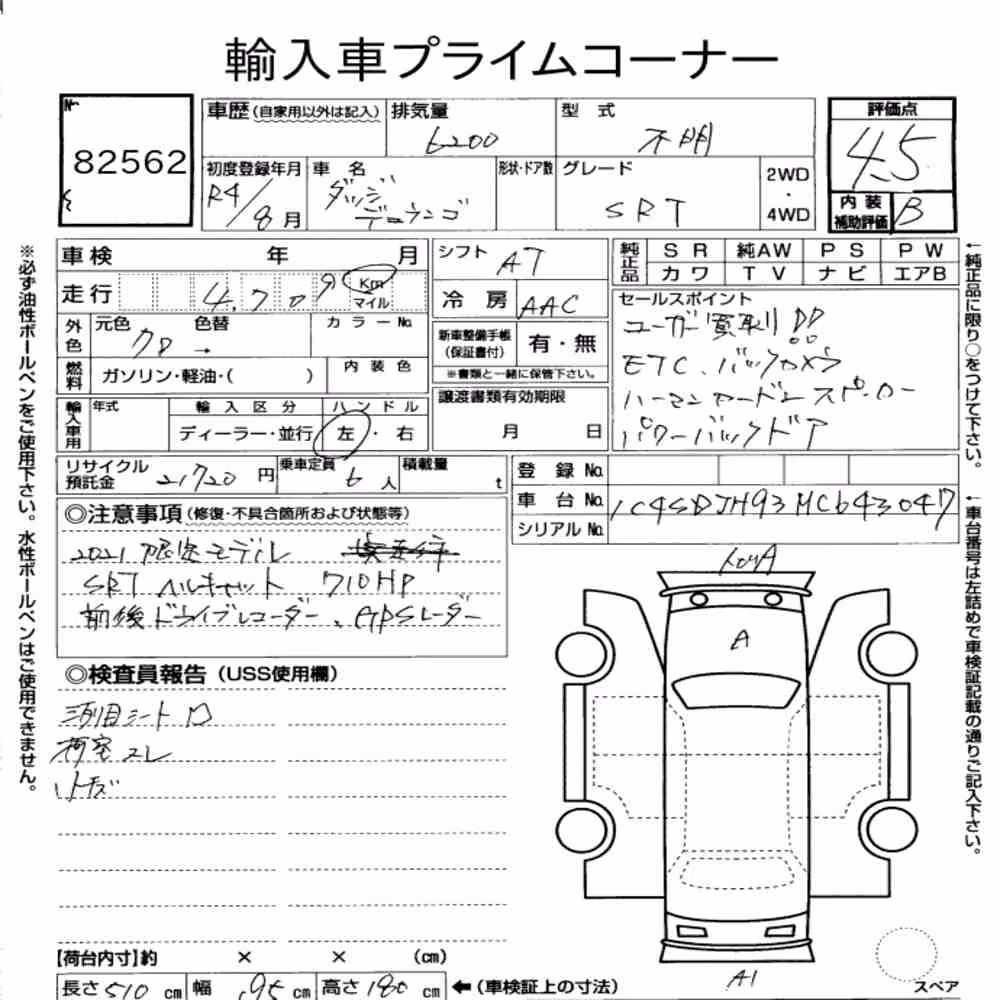 輸入車プライムコーナー
№
82562
車歴(自家用以外は記入) 排気量 6200 型式 不明
評価点 4.5
初度登録年月 R4/8月 車名 ダッジ デュランゴ 形状・ドア数 グレード SRT 2WD・4WD
内装補助評価 B
車検 年 月
シフト AT
純正品 SR 純AW PS PW
カワ TV ナビ エアB
走行 4,709 Km マイル
冷房 AAC
外色 元色 色替 カラーNo. クロ →
新車整備手帳(保証書付) 有・無
※書類と一緒に保管下さい。
セールスポイント
ユーザー買取り!!
ETC、バックカメラ
ハーマンカードンスピーカー
パワーバックドア
燃料 ガソリン・軽油・( ) 内装色
譲渡書類有効期限
月 日
輸入車用 年式 輸入区分 ハンドル
ディーラー・並行 左・右
リサイクル預託金 21720円 乗車定員 6人 積載量 t
登録No.
車台No. 1C4SDJH93MC643047
シリアルNo.
◎注意事項(修復・不具合箇所および状態等)
2021 限定モデル
SRT ヘルキャット 710HP
前後ドライブレコーダー、GPSレーダー
◎検査員報告(USS使用欄)
三列目シート
荷室スレ
小キズ
A
A1
スペア
【荷台内寸】約 × × (cm)
長さ 510 cm 幅 195 cm 高さ 180 cm ←(車検証上の寸法)
※必ず油性ボールペンをご使用下さい。水性ボールペンはご使用できません。
←純正品に限り○をつけて下さい。
←車台番号は左詰めで車検証記載の通りご記入下さい。